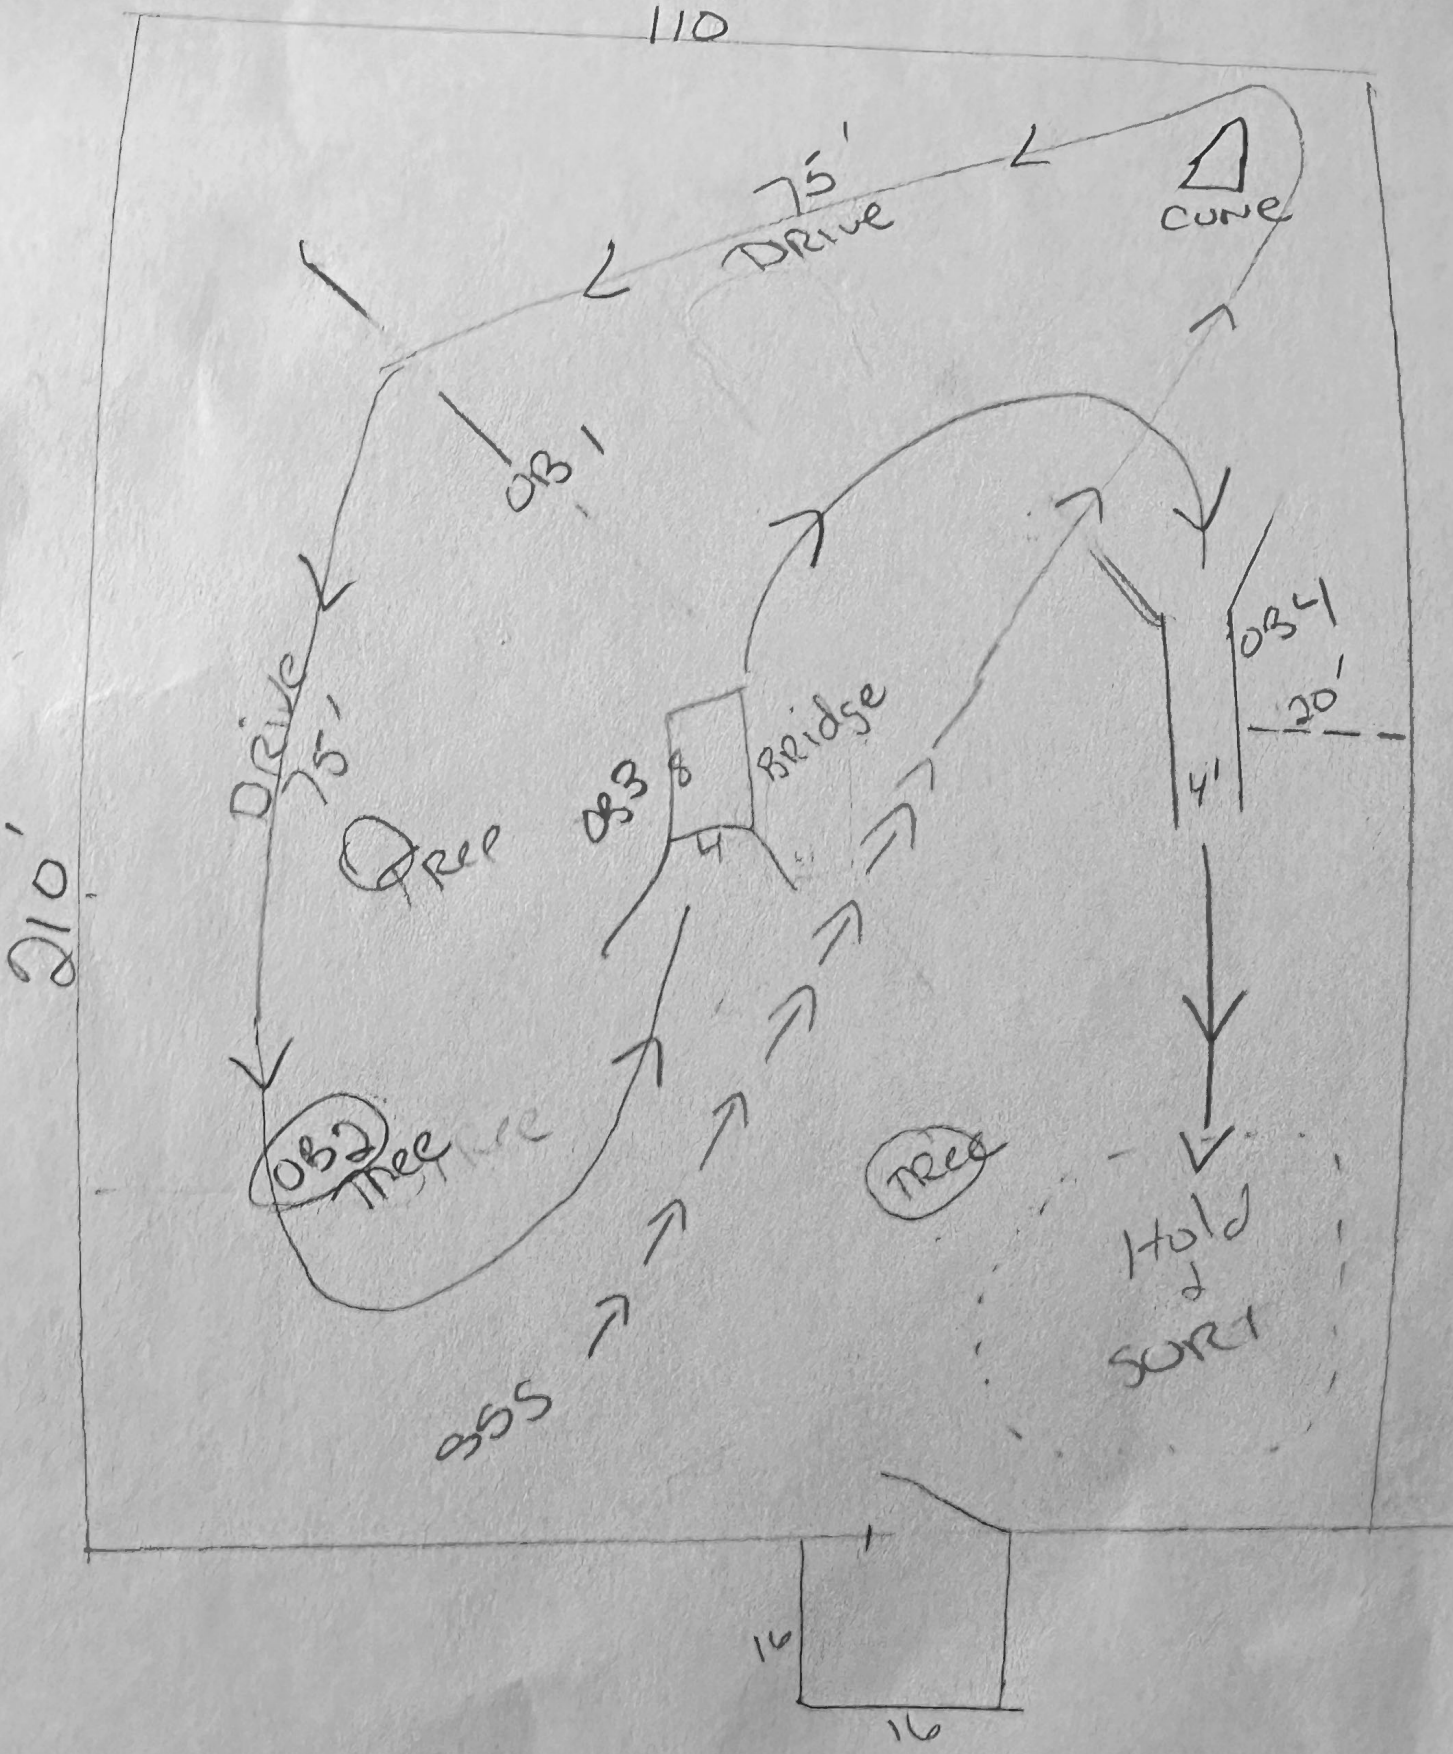 110
75'
DRIVE
CONE
OB 1
OB4
20'
4'
DRIVE
75'
Tree
OB3
8
BRidge
4
210'
OB2
Tree
Tree
TRee
Hold
&
SORT
16
16